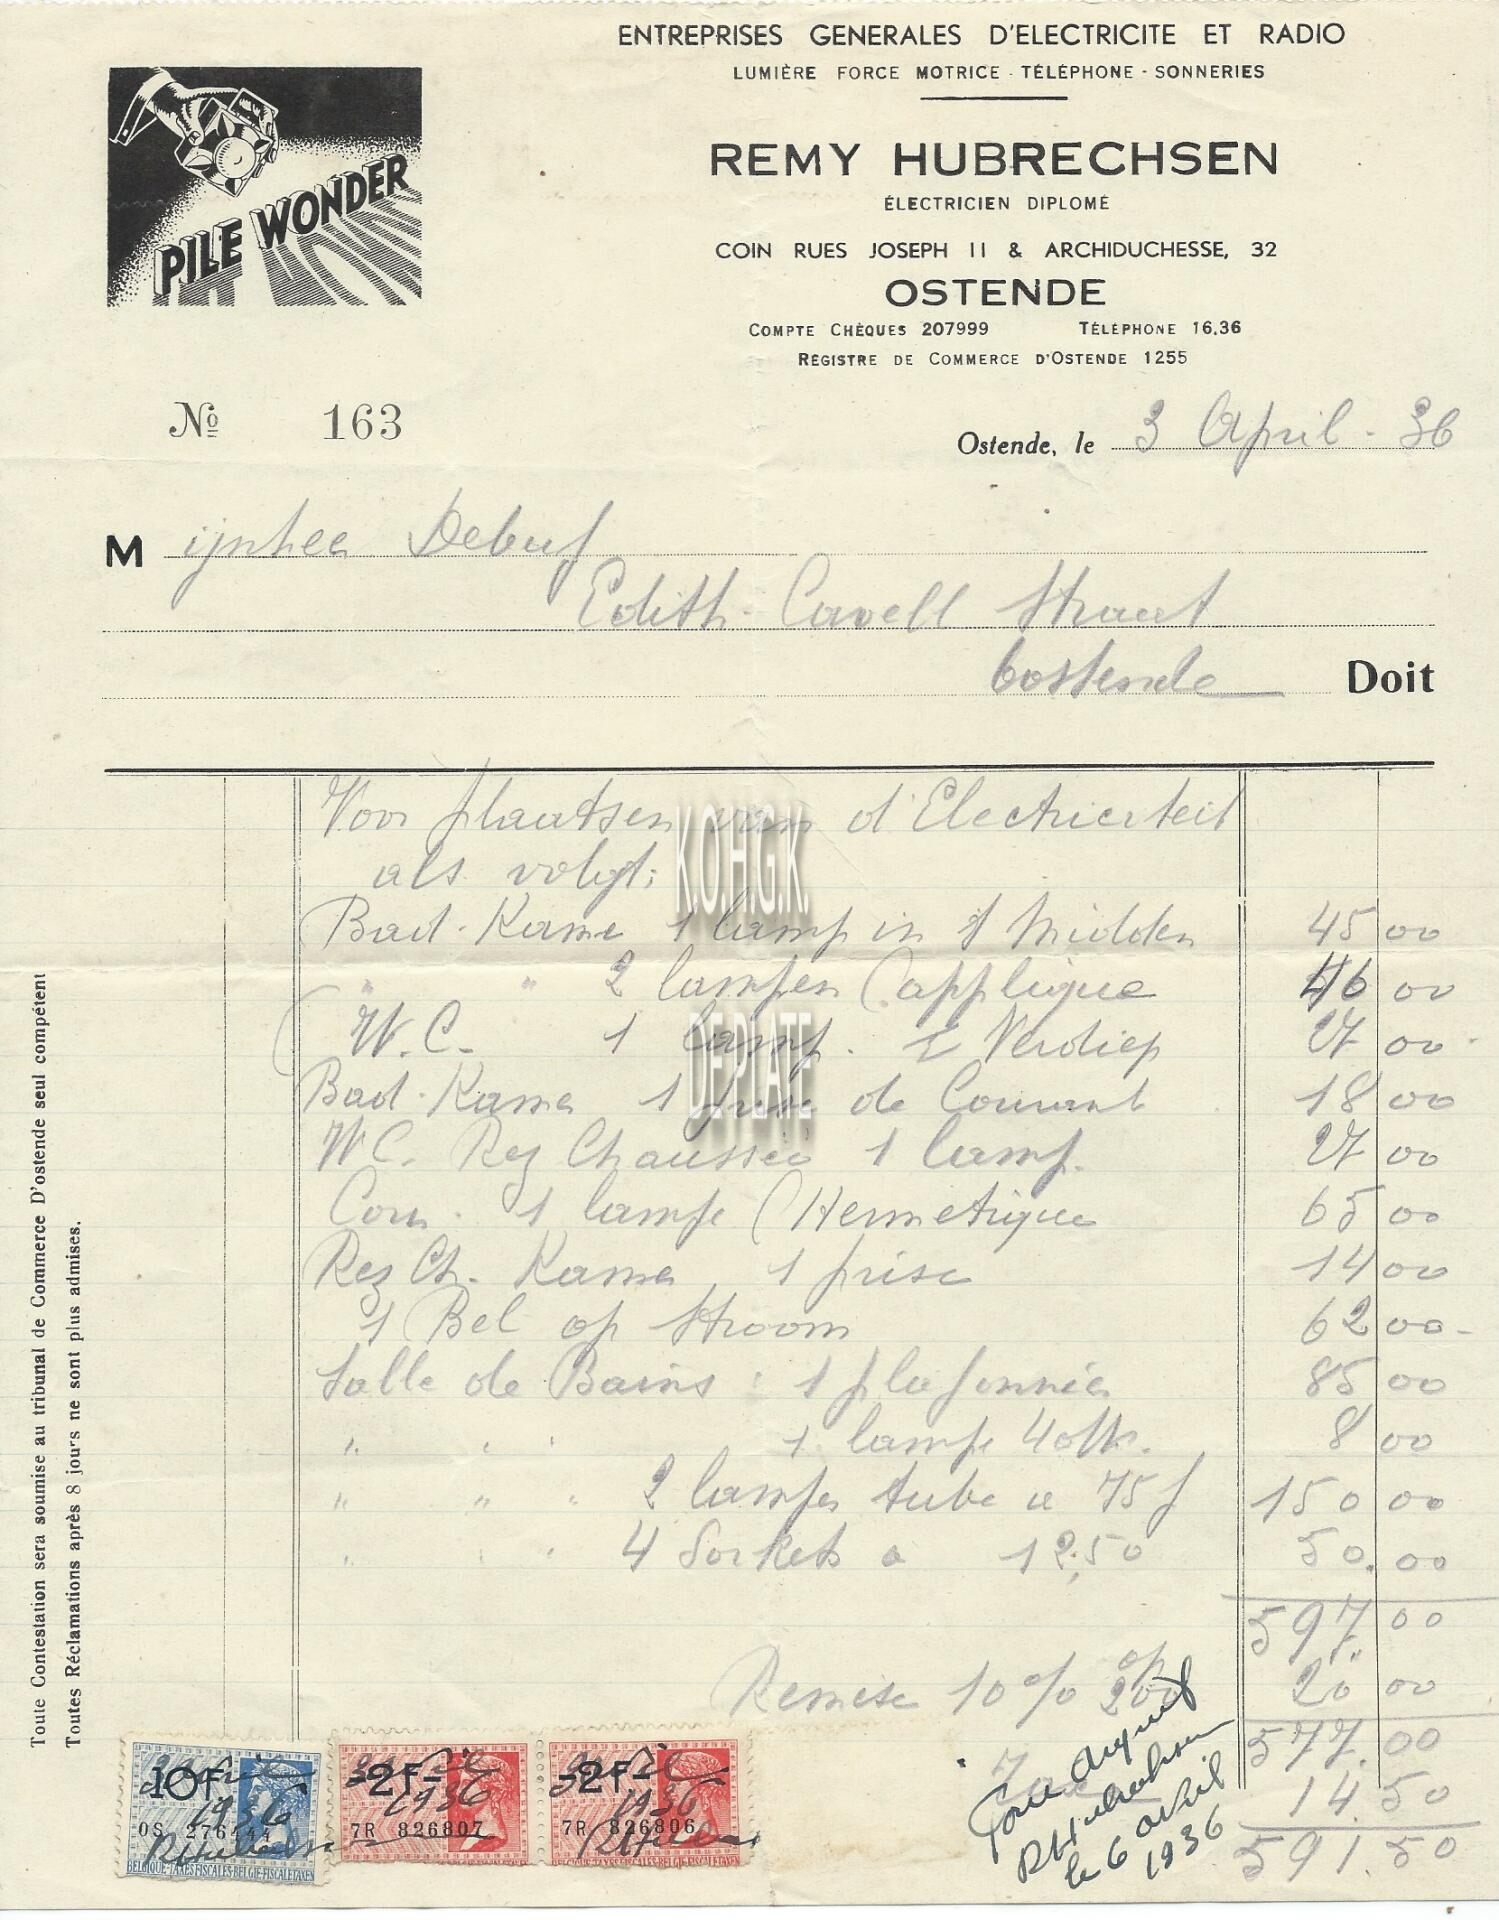 ENTREPRISES GENERALES D'ELECTRICITE ET RADIO
LUMIÈRE FORCE MOTRICE - TÉLÉPHONE - SONNERIES
PILE WONDER
REMY HUBRECHSEN
ÉLECTRICIEN DIPLOMÉ
COIN RUES JOSEPH II & ARCHIDUCHESSE, 32
OSTENDE
COMPTE CHÈQUES 207999 TÉLÉPHONE 16.36
REGISTRE DE COMMERCE D'OSTENDE 1255
No 163
Ostende, le 3 April - 36
Mijnheer Debuf
Edith-Cavell Straat
Oostende Doit
Voor plaatsen van d'Electricteit
als volgt;
Bad-Kame 1 lamp in 't Midden 45 00
" " 2 lampen (applique 46 00
W.C. 1 lamp. 1 Verdiep 27 00
Bad-Kame 1 prise de Courant 18 00
WC. Rez Chaussée 1 lamp. 27 00
Cour. 1 lampe (Hermetique 65 00
Rez Ch. Kame 1 prise 14 00
1 Bel op Stroom 62 00
Salle de Bains : 1 plafonnier 85 00
1 lampe 40 8 00
" " " 2 lampes tube a 75 f 150 00
4 Sockets a 12,50 50.00
597.00
Remise 10% op 200 20 00
577.00
Taxe 14.50
591.50
Pour Acquit
RHubrechsen
le 6 avril
1936
Toute Contestation sera soumise au tribunal de Commerce D'ostende seul compétent
Toutes Réclamations après 8 jours ne sont plus admises.
K.O.H.G.K.
DE PLATE
10F
1936
OS 276444
BELGIQUE-TAXES FISCALES-BELGIE-FISCALE TAXEN
2F
1936
7R 826807
2F
1936
7R 826806